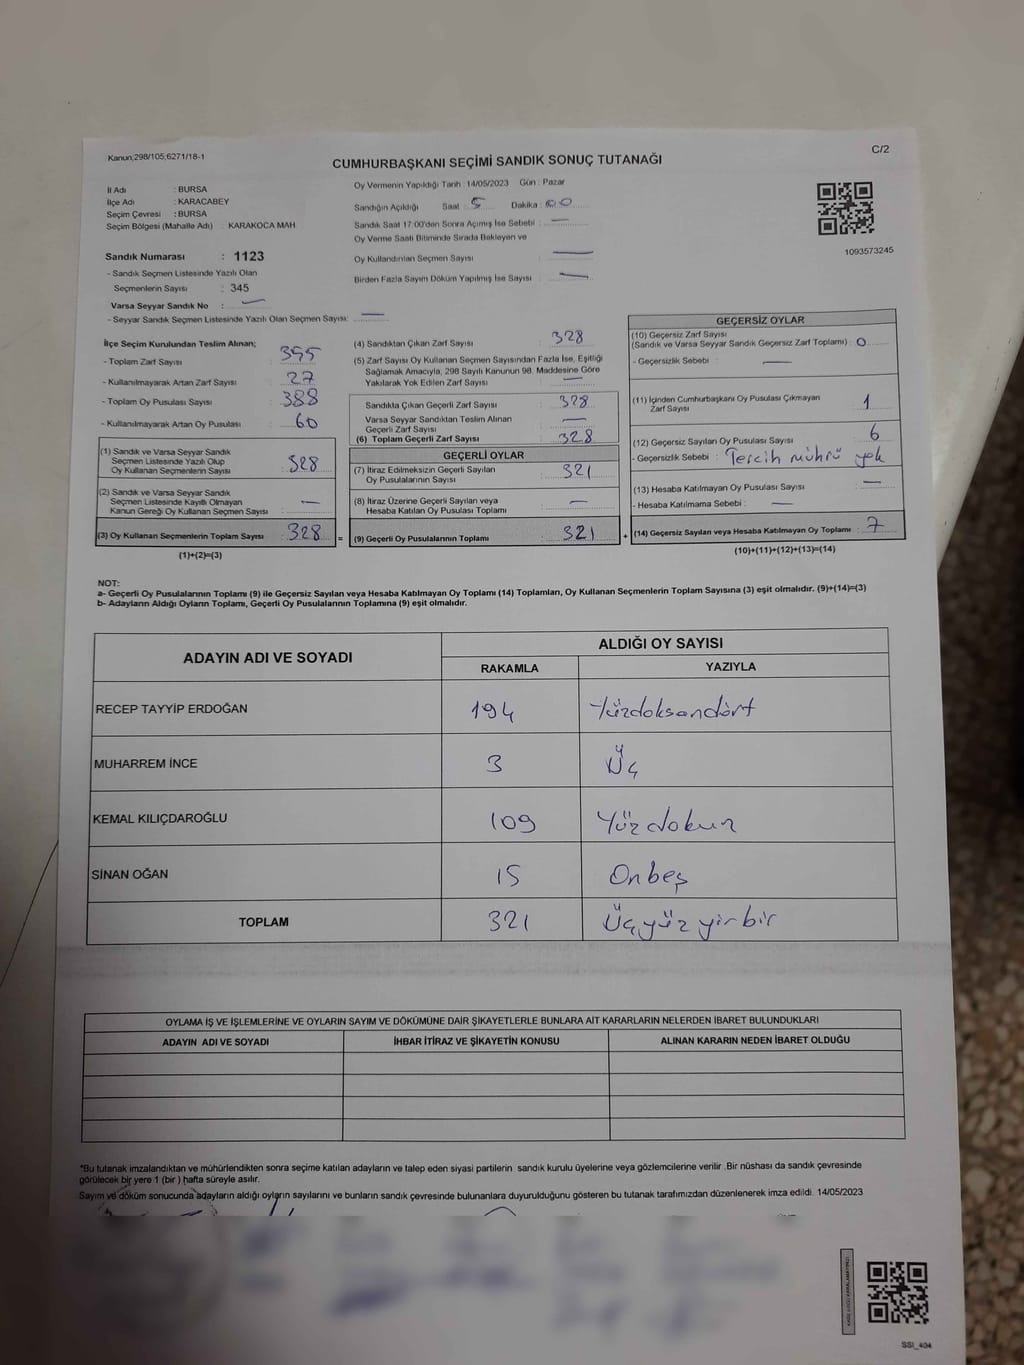 Kanun;298/105;6271/18-1
C/2
CUMHURBAŞKANI SEÇİMİ SANDIK SONUÇ TUTANAĞI
İl Adı : BURSA
İlçe Adı : KARACABEY
Seçim Çevresi : BURSA
Seçim Bölgesi (Mahalle Adı) : KARAKOCA MAH.
Oy Vermenin Yapıldığı Tarih :14/05/2023 Gün : Pazar
Sandığın Açıldığı Saat : 5 Dakika : 00
Sandık Saat 17:00'den Sonra Açımış İse Sebebi : —
Oy Verme Saati Bitiminde Sırada Bekleyen ve
Oy Kullandırılan Seçmen Sayısı : —
Birden Fazla Sayım Döküm Yapılmış İse Sayısı : —
1093573245
Sandık Numarası : 1123
- Sandık Seçmen Listesinde Yazılı Olan
Seçmenlerin Sayısı : 345
Varsa Seyyar Sandık No : —
- Seyyar Sandık Seçmen Listesinde Yazılı Olan Seçmen Sayısı: —
İlçe Seçim Kurulundan Teslim Alınan;
- Toplam Zarf Sayısı : 355
- Kullanılmayarak Artan Zarf Sayısı : 27
- Toplam Oy Pusulası Sayısı : 388
- Kullanılmayarak Artan Oy Pusulası : 60
(1) Sandık ve Varsa Seyyar Sandık
Seçmen Listesinde Yazılı Olup
Oy Kullanan Seçmenlerin Sayısı : 328
(2) Sandık ve Varsa Seyyar Sandık
Seçmen Listesinde Kayıtlı Olmayan
Kanun Gereği Oy Kullanan Seçmen Sayısı : —
(3) Oy Kullanan Seçmenlerin Toplam Sayısı : 328
(1)+(2)=(3)
(4) Sandıktan Çıkan Zarf Sayısı : 328
(5) Zarf Sayısı Oy Kullanan Seçmen Sayısından Fazla İse, Eşitliği
Sağlamak Amacıyla, 298 Sayılı Kanunun 98. Maddesine Göre
Yakılarak Yok Edilen Zarf Sayısı : —
Sandıkta Çıkan Geçerli Zarf Sayısı : 328
Varsa Seyyar Sandıktan Teslim Alınan
Geçerli Zarf Sayısı : —
(6) Toplam Geçerli Zarf Sayısı : 328
GEÇERLİ OYLAR
(7) İtiraz Edilmeksizin Geçerli Sayılan
Oy Pusulalarının Sayısı : 321
(8) İtiraz Üzerine Geçerli Sayılan veya
Hesaba Katılan Oy Pusulası Toplamı : —
= (9) Geçerli Oy Pusulalarının Toplamı : 321
GEÇERSİZ OYLAR
(10) Geçersiz Zarf Sayısı
(Sandık ve Varsa Seyyar Sandık Geçersiz Zarf Toplamı) : 0
- Geçersizlik Sebebi : —
(11) İçinden Cumhurbaşkanı Oy Pusulası Çıkmayan
Zarf Sayısı : 1
(12) Geçersiz Sayılan Oy Pusulası Sayısı : 6
- Geçersizlik Sebebi : Tercih mührü yok
(13) Hesaba Katılmayan Oy Pusulası Sayısı : —
- Hesaba Katılmama Sebebi : —
+ (14) Geçersiz Sayılan veya Hesaba Katılmayan Oy Toplamı : 7
(10)+(11)+(12)+(13)=(14)
NOT:
a- Geçerli Oy Pusulalarının Toplamı (9) ile Geçersiz Sayılan veya Hesaba Katılmayan Oy Toplamı (14) Toplamları, Oy Kullanan Seçmenlerin Toplam Sayısına (3) eşit olmalıdır. (9)+(14)=(3)
b- Adayların Aldığı Oyların Toplamı, Geçerli Oy Pusulalarının Toplamına (9) eşit olmalıdır.
ADAYIN ADI VE SOYADI ALDIĞI OY SAYISI
RAKAMLA YAZIYLA
RECEP TAYYİP ERDOĞAN 194 Yüzdoksandört
MUHARREM İNCE 3 Üç
KEMAL KILIÇDAROĞLU 109 Yüzdokuz
SİNAN OĞAN 15 Onbeş
TOPLAM 321 Üçyüz yirbir
OYLAMA İŞ VE İŞLEMLERİNE VE OYLARIN SAYIM VE DÖKÜMÜNE DAİR ŞİKAYETLERLE BUNLARA AİT KARARLARIN NELERDEN İBARET BULUNDUKLARI
ADAYIN ADI VE SOYADI İHBAR İTİRAZ VE ŞİKAYETİN KONUSU ALINAN KARARIN NEDEN İBARET OLDUĞU
*Bu tutanak imzalandıktan ve mühürlendikten sonra seçime katılan adayların ve talep eden siyasi partilerin sandık kurulu üyelerine veya gözlemcilerine verilir. Bir nüshası da sandık çevresinde
görülecek bir yere 1 (bir ) hafta süreyle asılır.
Sayım ve döküm sonucunda adayların aldığı oyların sayılarını ve bunların sandık çevresinde bulunanlara duyurulduğunu gösteren bu tutanak tarafımızdan düzenlenerek imza edildi. 14/05/2023
SSI_404